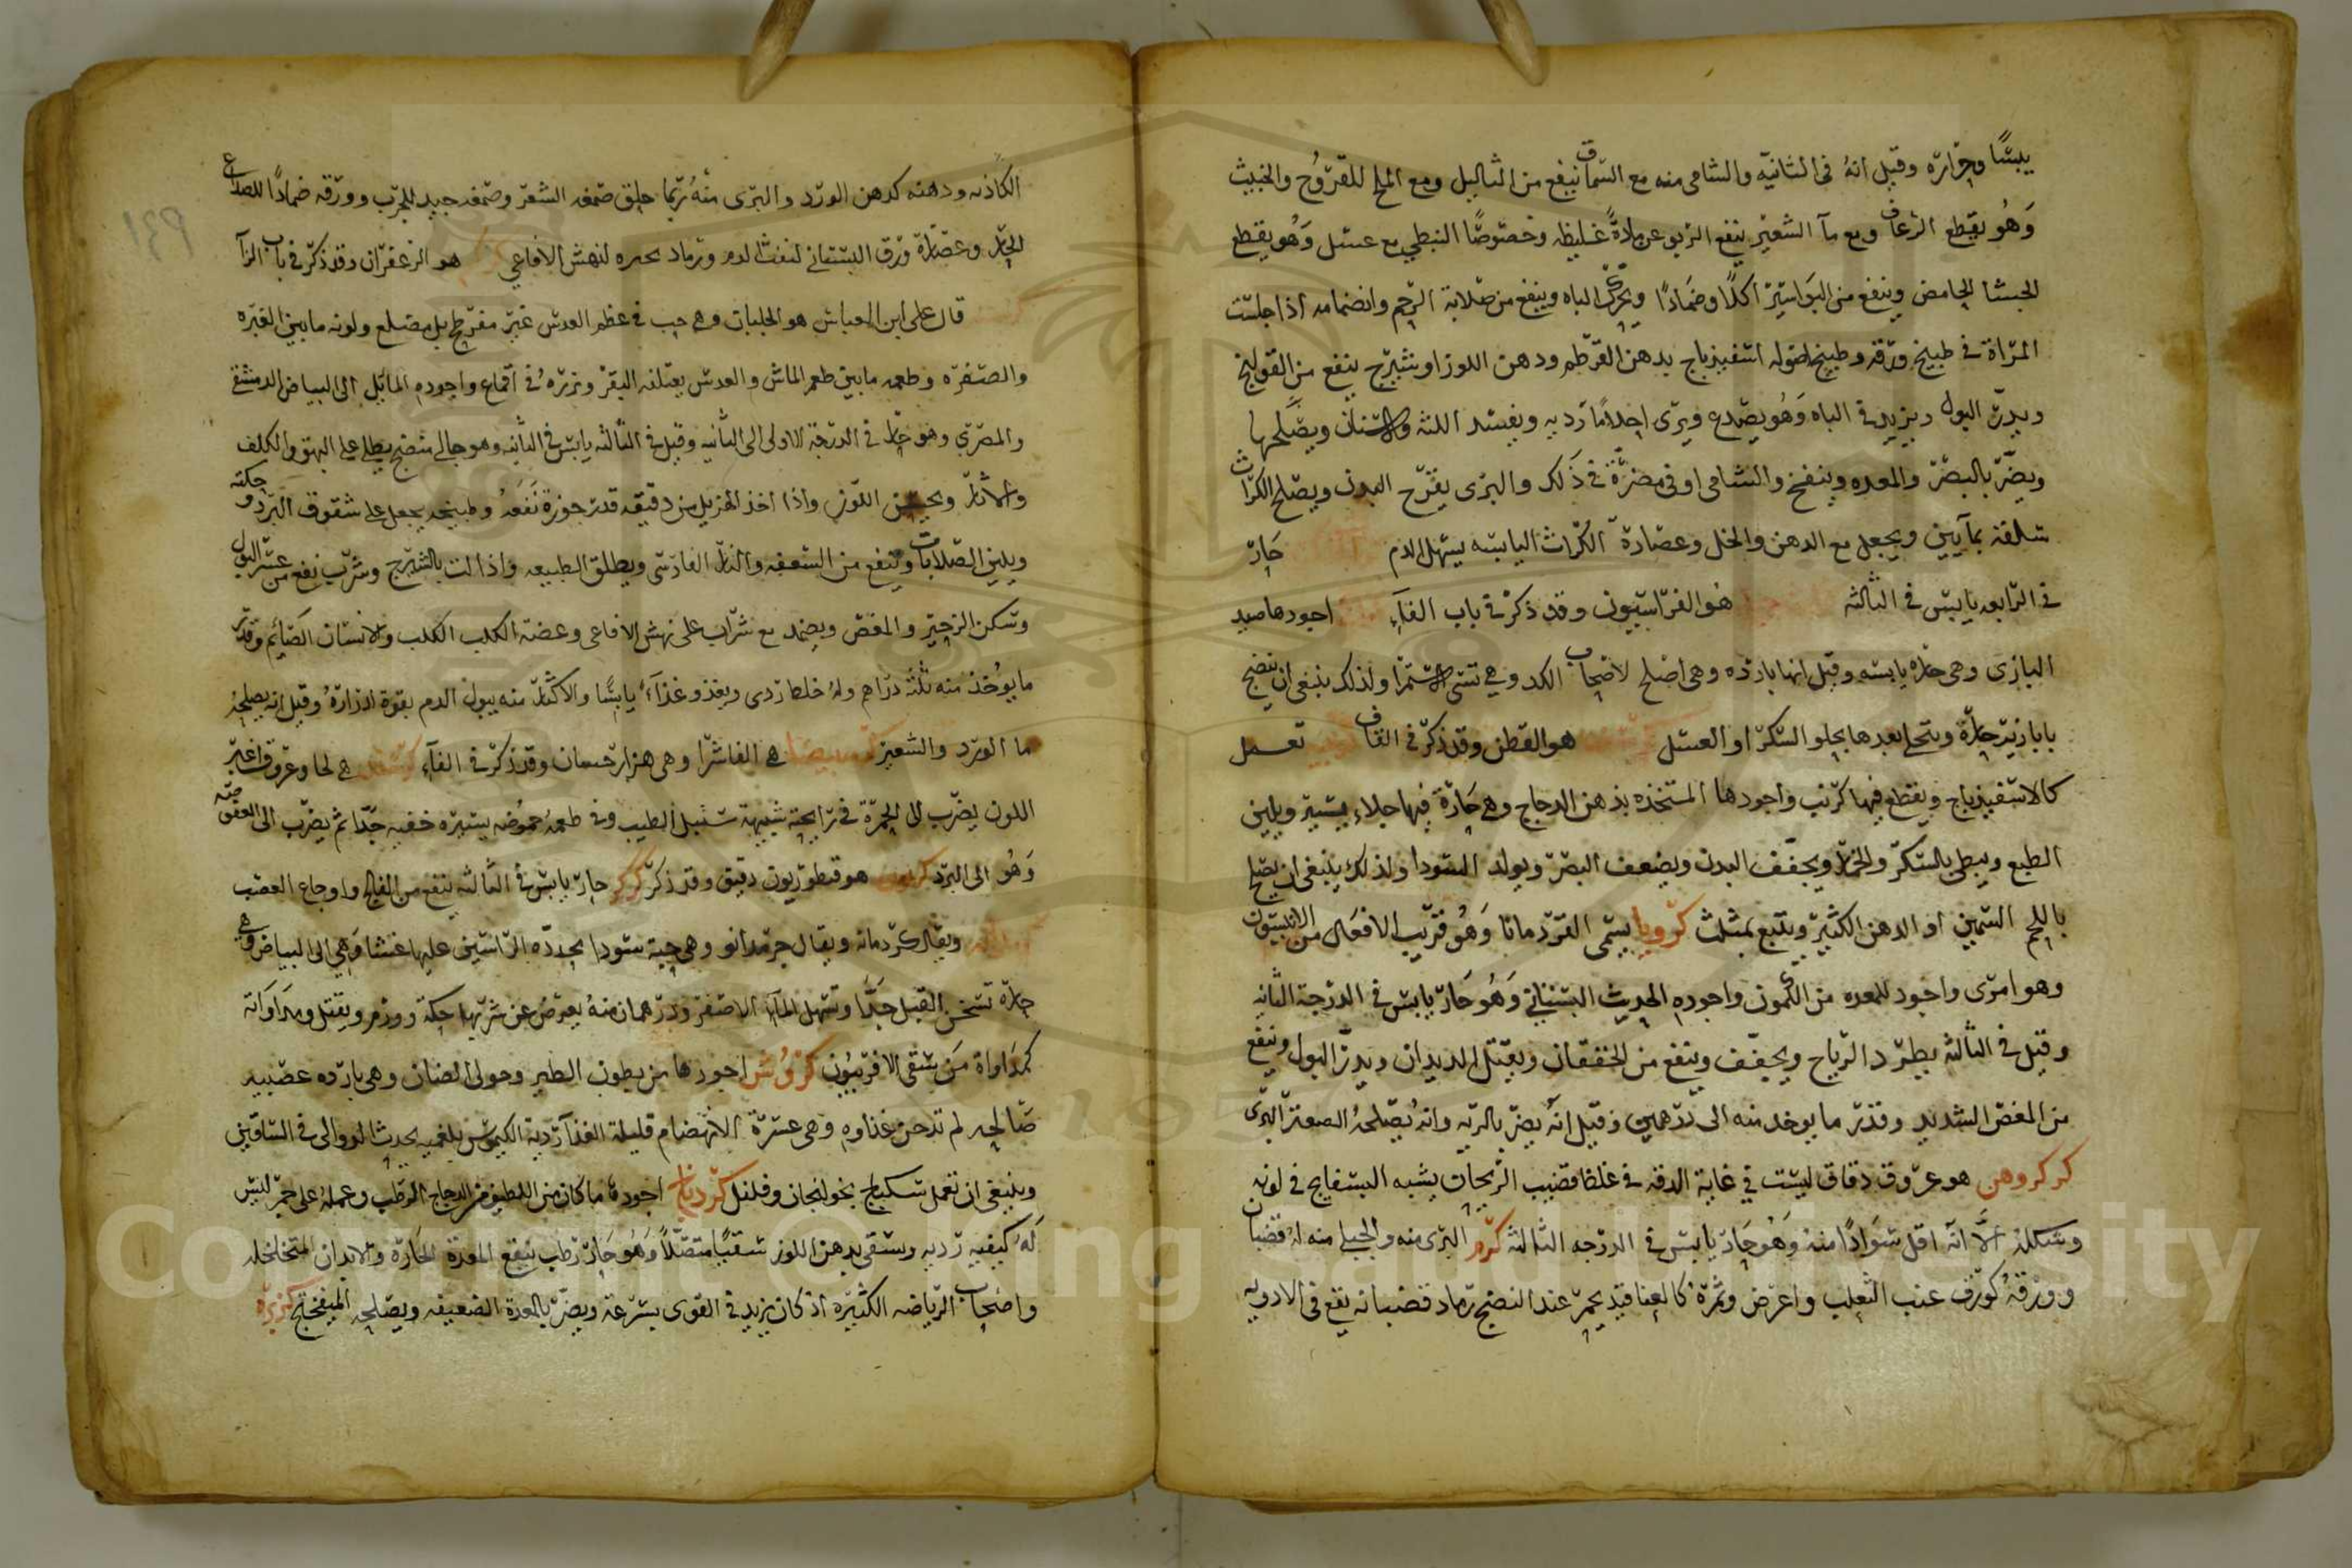 يبسًا وحرارة وقيل انهُ في الثانيه والشامي منه مع السماق ينفع من الثاليل ومع الملح للقروح والخبيث
وَهُو يقطع الرعاف ومع مآ الشعير ينفع الربو عن مادةً غليظه وخصوصًا النبطي مع عسل وَهُو يقطع
الجشا الحامض وينفع من البواسير اكلًا وضمادًا ويحرك الباه وينفع من صلابة الرحم وانضمامه اذا جلست
المراة في طبيخ ورقه وطبيخ اصوله اسفيذباج بدهن القرطم ودهن اللوز او بشيرج ينفع من القولنج
ويدر البول ويزيد في الباه وَهُو يصدع ويرى احلامًا رديه ويفسد اللثه والاسنان ويصلحها
ويضر بالبصر والمعده وينفخ والشامي اوفى مضرّة في ذَلك والبرى يقرح البدن ويصلح الكراث
سلقه بمآيين ويجعل مع الدهن والخل وعصارة الكراث اليابسه يسهل الدم حَارّ
في الرابعه يابس في الثالثه هُو الفراسيون وقد ذكر في باب الفآء اجودها صيد
البازى وهي حاره يابسه وقيل انها بارده وهى اصلح لاصحاب الكد وهي تسى الاستمرا ولذلك ينبغى ان ينضج
بابازير حارّة ويتحلى بعدها بحلو السكر او العسل هو القطن وقد ذكر في القاف تعمل
كالاسفيذباج ويقطع فيها كرنب واجودها المتخذه بدهن الدجاج وهي حَارّة فيها جلاء يسير ويلين
الطبع ويبطى بالسكر والخمار ويجفّف البدن ويضعف البصر ويولد السودا ولذلك ينبغى ان يصلح
باللحم السمين او الدهن الكثير ويتبع بمثلث كرويا يسمى القردمانا وَهُو قريب الافعال من الانيسون
وهو امرى واجود للمعده من الكمون واجوده الحديث البستاني وَهُو حَارّ يابس في الدرجة الثانيه
وقيل في الثالثه يطرد الرياح ويجفّف وينفع من الخفقان ويقتل الديدان ويدر البول وينفع
من المغص الشديد وقدر ما يوخد منه الى درهمين وقيل انهُ يضر بالريه وانهُ يصلحهُ الصعتر البرى
كركروهن هو عروق دقاق ليست في غاية الدقه في غلظ قضيب الريحان يشبه البسفايج في لونه
وشكله الاّ انه اقل سَوادًا منه وَهُو حَار يابس في الدرجه الثالثه كرم البرى منه والجبلي منه لهُ قضبان
وورقهُ كورق عنب الثعلب واعرض وثمرة كالعناقيد يحمر عند النضج رماد قضبانه يقع في الادويه
الكاذبه ودهنه كدهن الورد والبرى منهُ ربما حلق صمغه الشعر وصمغه جيد للجرب وورقه ضمادًا للصداع
الحار وعصارة ورق البستاني لنفث الدم ورماد لنهش الافاعي هو الزعفران وقد ذكر في باب الزآ
قال على ابن العباس هو الجلبان وهي حب في عظم العدس غير مفرطح بل مضلع ولونه ما بين الغبره
والصفره وطعمه ما بين طعم الماش والعدس يعتلفه البقر وبزرهُ في اقماع واجوده المايل الى البياض الدمشقي
والمصرى وهو حار في الدرجة الاولى الى الثانيه وقيل في الثالثه يابس في الثانيه وهو جالي منضج يطلى على البهق والكلف
والاثار ويحسن اللون واذا اخذ الهزيل من دقيقه قدر جوزة نَفَعهُ وطبيخه يجعل على شقوق البرد وحكته
ويلين الصلابات وينفع من السعفه والنار الفارسى ويطلق الطبيعه واذا لت بالشيرج وشرب نفع من عسر البول
وتسكن الزحير والمغص ويضمد مع شراب على نهش الافاعى وعضة الكلب الكلب والانسان الصايم وقدر
ما يوُخذ منه ثلثه دراهم ولهُ خلط ردى ويغذو غذآءً يابسًا والاكثار منه يبول الدم بقوة ادرارهُ وقيل انه يصلحهُ
ما الورد والشعير كرمه بيضا هي الفاشرا وهى هزارجشان وقد ذكر في الفآء هي لحا وعروق اغبر
اللون يضرب الى الحمرة في رايحته شبيهة سنبل الطيب وفي طعمهُ حموُضه يسيره خفيه جدًّا ثم يضرب الى العفوصه
وَهُو الى البرد هو قنطوريون دقيق وقد ذكر كركر حار يابس في الثالثه ينفع من الفالج واوجاع العصب
ويقال كردمانه ويقال جرمدانو وهي حبة سودا محدده الراسين عليها غشا وَهى الى البياض وهي
حارّة تسخن القبل جدًّا وتسهل المآء الاصفر ودرهمان منهُ يعرضُ عن شربها حكة وورم ويقتل ومداواته
كمداواة مَن سقى الافربيُون كروُش اجودها من بطون الطير وحولى الضان وهى بارده عصبيه
صالحه لم تدخن غذاوه وهى عسرة الانهضام قليلة الغذآ ردية الكيموس بلغميه يحدث الدوالى في الساقين
وينبغى ان تعمل سكباج بخولنجان وفلفل كردناج اجوده ما كان من اللطيف من الدجاج الرطب وعمله على جمر ليس
لَهُ كيفيه رديه ويسقى بدهن اللوز سقيًا متصلًا وَهُو حَار رَطب ينفع المعدة الحاره والابدان المتخلخله
واصحاب الرياضه الكثيره اذ كان يزيد في القوى بسرعة ويضر بالمعدة الضعيفه ويصلحه الميفختج كزبره